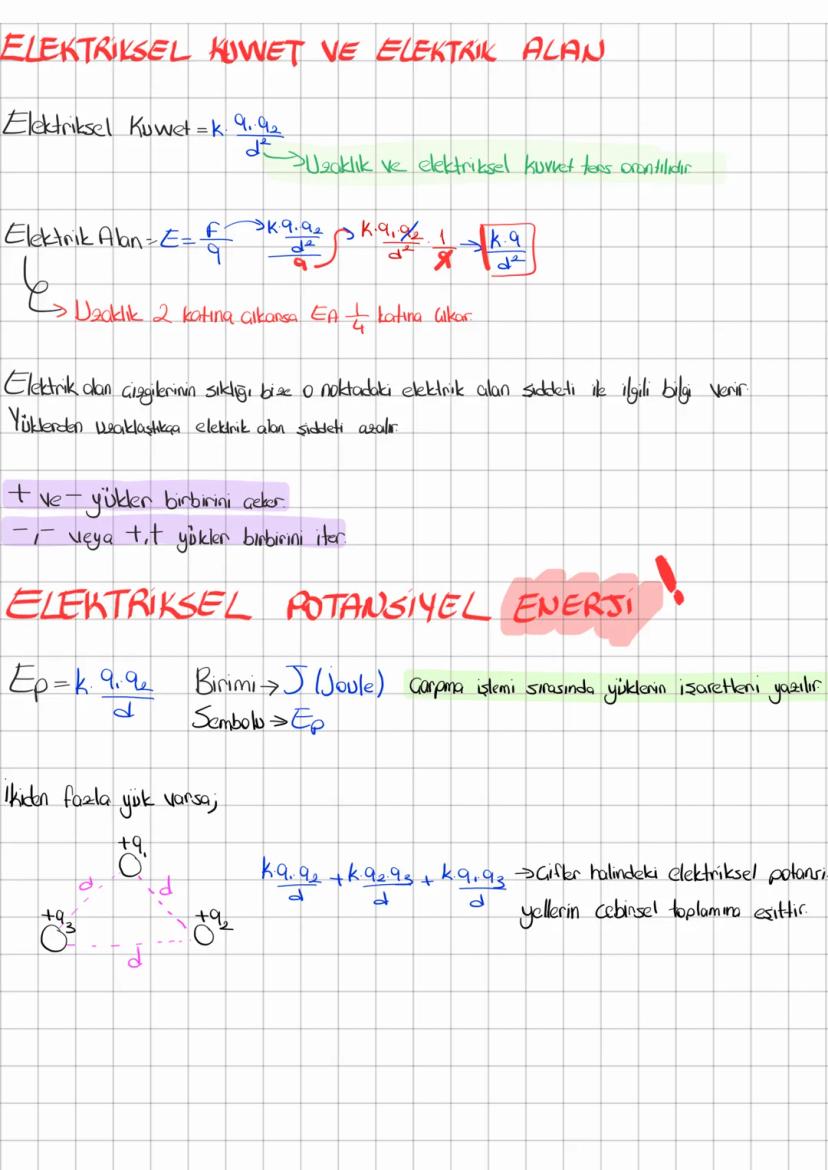 ELEKTRİKSEL KUVVET VE ELEKTRİK ALAN
Elektriksel Kuvvet = k. q₁.q₂/d²
→ Uzaklık ve elektriksel kuvvet ters orantılıdır
Elektrik Alan = E = F/q → k.q₁.q₂/d² / q → k.q₁.q₂/d² . 1/q → k.q/d²
→ Uzaklık 2 katına çıkarsa EA 1/4 katına çıkar.
Elektrik alan çizgilerinin sıklığı bize o noktadaki elektrik alan şiddeti ile ilgili bilgi verir.
Yüklerden uzaklaştıkça elektrik alan şiddeti azalır.
+ ve - yükler birbirini çeker.
-,- veya +,+ yükler birbirini iter.
ELEKTRİKSEL POTANSİYEL ENERJİ !
Ep = k. q₁.q₂/d Birimi → J (Joule) Çarpma işlemi sırasında yüklerin işaretleri yazılır.
Sembolü → Ep
İkiden fazla yük varsa;
+q₁
d d
+q₃ +q₂
d
k.q₁.q₂/d + k.q₂.q₃/d + k.q₁.q₃/d → Çiftler halindeki elektriksel potansi-
yellerin cebirsel toplamına eşittir.